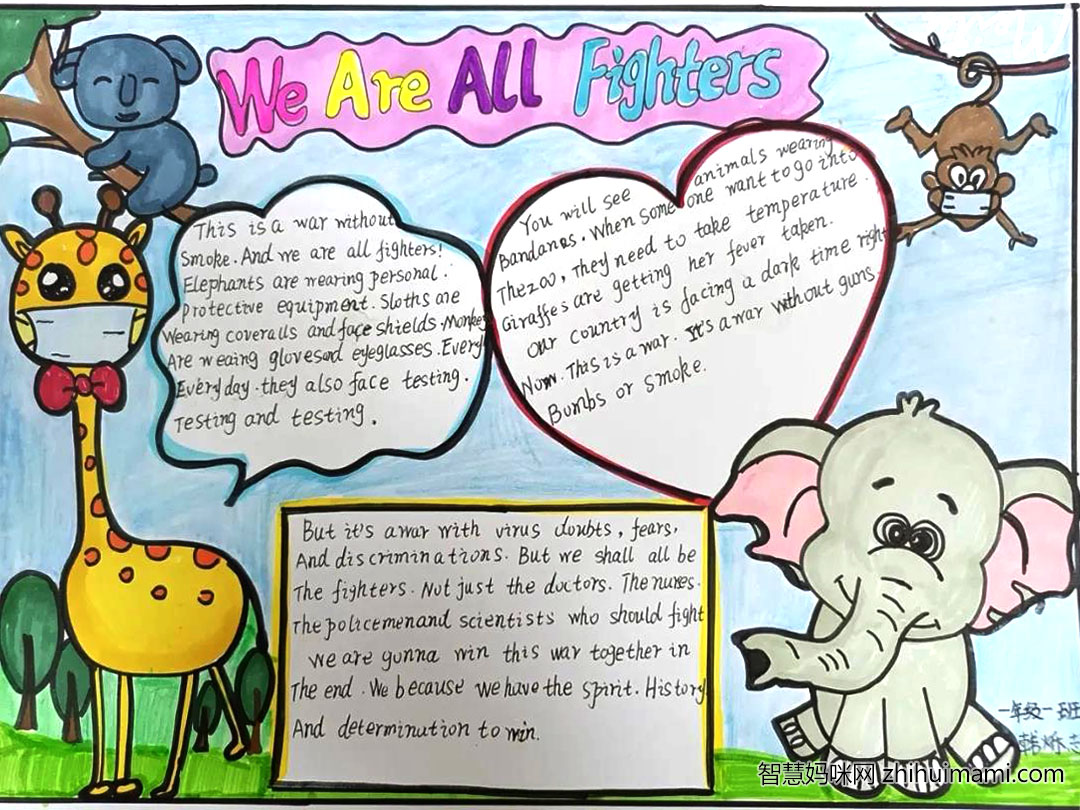 We Are All Fighters
This is a war without
Smoke. And we are all fighters!
Elephants are wearing personal.
Protective equipment. Sloths are
Wearing coveralls and face shields. Monkey
Are weaing glovesand eyeglasses. Every
Everyday. they also face testing.
Testing and testing.
You will see animals wearing
Bandanas. When someone want to go into
The zoo, They need to take temperature.
Giraffes are getting her fever taken.
Our country is facing a dark time right
Now. This is a war. It's a war without guns.
Bumbs or smoke.
But it's a war with virus doubts, fears,
And discriminations. But we shall all be
The fighters. Not just the doctors. The nures.
The policemenand scientists who should fight
We are gunna win this war together in
The end. We because we have the spirit. History
And determinution to win.
一年级一班
韩烁
智慧妈咪网 zhihuimami.com